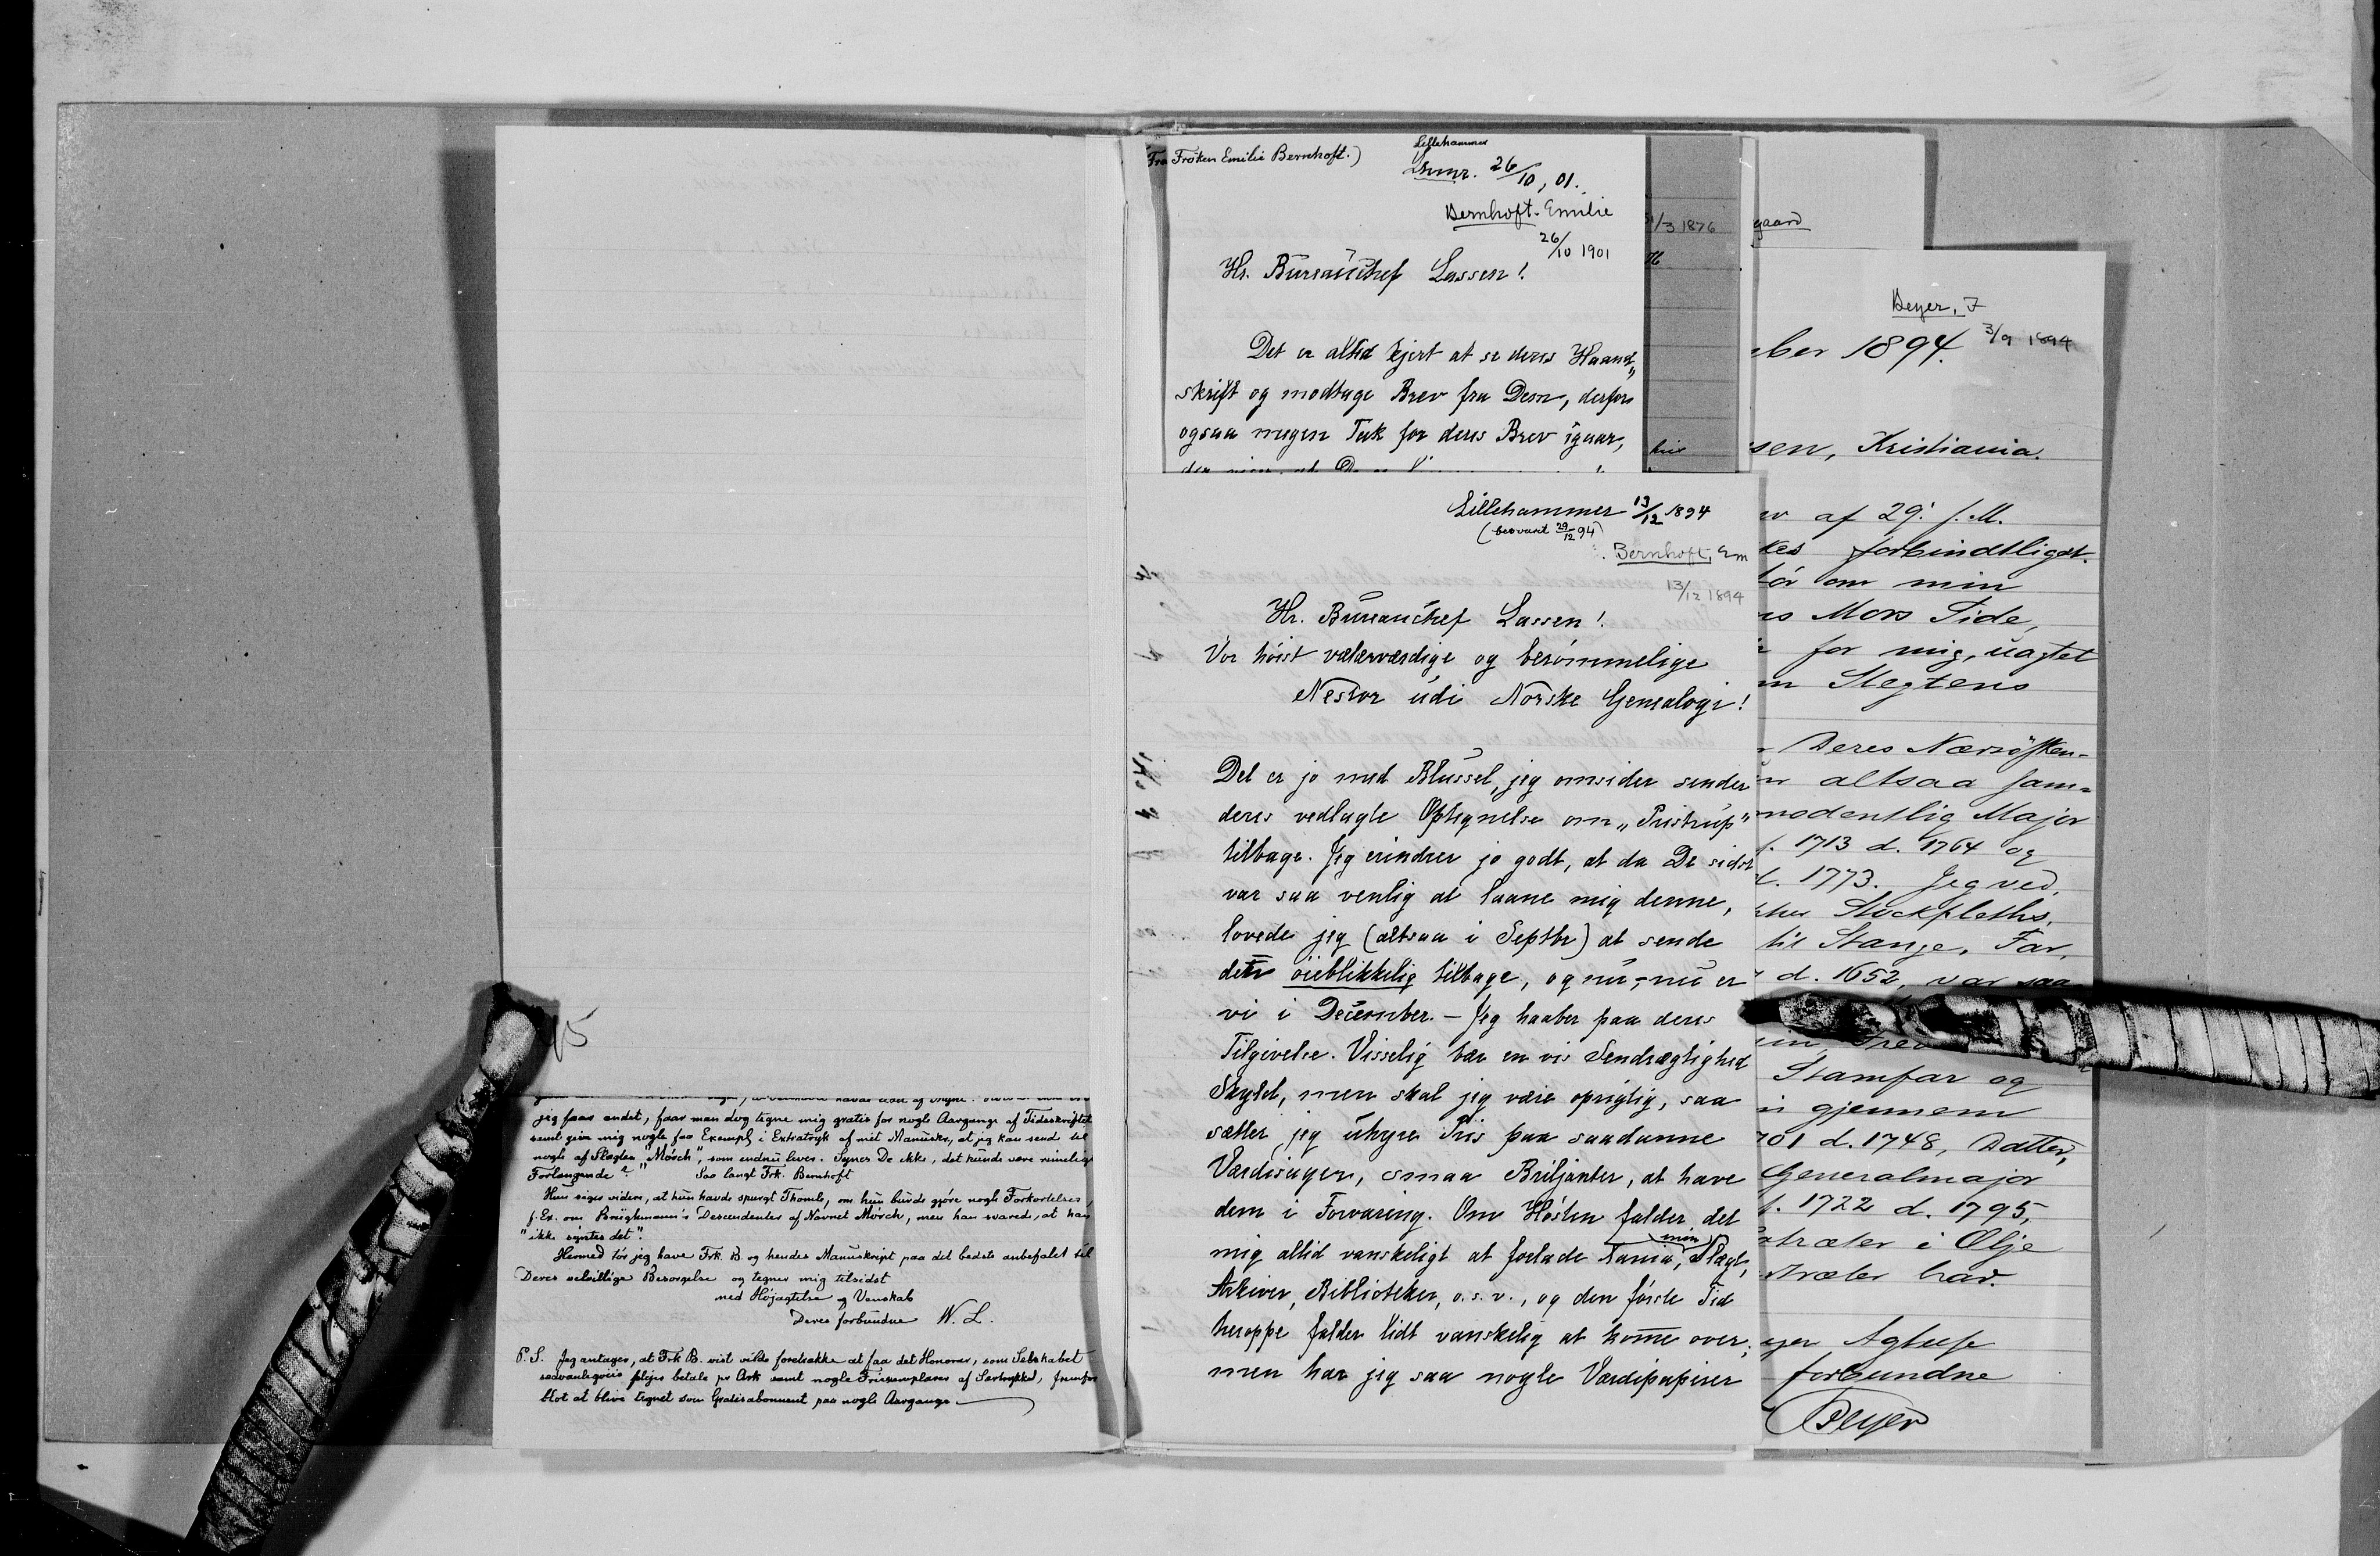 jeg faar andet, faar man dog tegne mig gratis for nogle Aargange af Tidsskriftet
samt give mig nogle faa Exempl, i Extratryk af mit Manuskr, at jeg kan sende til
nogle af Slægten "Mörch", som endnu lever. Synes De ikke, det kunde være rimeligt
Forlangende?" Saa langt Frk. Bernhoft
Hun siger videre, at hun havde spurgt Thomle, om hun burde gjöre nogle Forkortelser,
f. Ex. om Brügkmann's Descendenter af Navnet Mörch, men han svarede, at han
"ikke syntes det".
Hermed tör jeg have Frk. B. og hendes Manuskript paa det bedste anbefalet til
Deres velvillige Besorgelse og tegner mig tilsidst
med Højagtelse og Venskab
Deres forbundne W. L.
P. S. Jeg antager, at Frk B. vist vilde foretrække at faa det Honorar, som Selskabet
sedvanligviis plejer betale pr Ark samt nogle Friexemplarer af Særtrykket, fremfor
blot at blive tegnet som Gratisabonnent paa nogle Aargange
Fra Fröken Emilie Bernhoft.)
Lillehammer
Lhmr. 26/10, 01.
Bernhoft. Emilie
26/10 1901
Hr. Bureauchef Lassen!
Det er altid kjert at se deres Haand„
skrift og modtage Brev fra Dem, derfor
ogsaa megen Tak for deres Brev igaar,
Lillehammer 13/12 1894
(besvaret 29/12 94)
Bernhoft, Em
13/12 1894
Hr. Bureauchef Lassen!
Vor höist velærværdige og berömmelige
Nestor udi Norske Genealogi!
Det er jo med Blussel, jeg omsider sender
deres vedlagte Optegnelse om „Tristrup"
tilbage. Jeg erindrer jo godt, at da De sidst
var saa venlig at laane mig denne,
lovede jeg (altsaa i Septbr) at sende
den öieblikkelig tilbage, og nu,- nu er
vi i December. – Jeg haaber paa deres
Tilgivelse. Visselig bær en vis Sendrægtighed
Skyld, men skal jeg være oprigtig, saa
sætter jeg uhyre Pris paa saadanne
Værdisager, smaa Briljanter, at have
dem i Forvaring. Om Hösten falder det
mig altid vanskeligt at forlade Xania, min Slægt,
Arkiver, Biblioteker, o. s. v., og den förste Tid
heroppe falder lidt vanskelig at komme over;
men har jeg saa nogle Værdipapirer
31/3 1876
gaard
Beyer, F
3/9 1894
ber 1894.
sen, Kristiania.
af 29' f. M.
kes forbindtligst.
om min
Mors Side,
for mig, uagtet
Slegtens
Deres Nærsösken-
altsaa sam=
modentlig Major
f. 1713 d. 1764 og
d. 1773. Jeg ved,
Stockfleths,
til Stange, Far,
d. 1652, var saa
Stamfar og
gjennem
701 d. 1748, Datter,
Generalmajor
f. 1722 d. 1795,
træter i Olje
træter har.
Agtelse
forbundne
Beyer